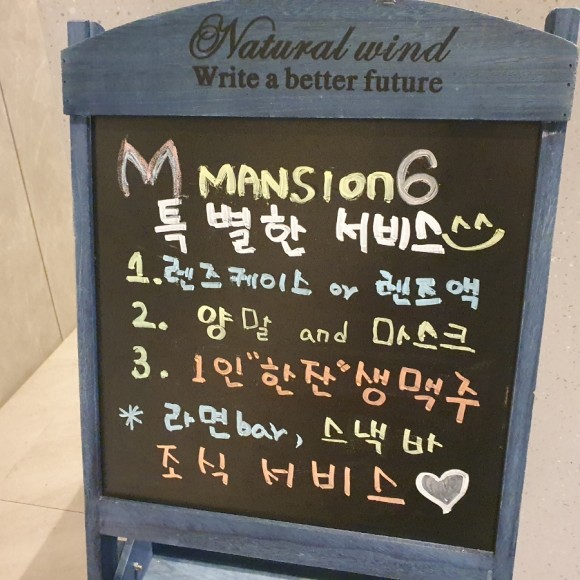 Natural wind
Write a better future
M MANSION6
특별한 서비스^^
1. 렌즈케이스 or 렌즈액
2. 양말 and 마스크
3. 1인"한잔"생맥주
* 라면bar, 스낵바
조식 서비스♡